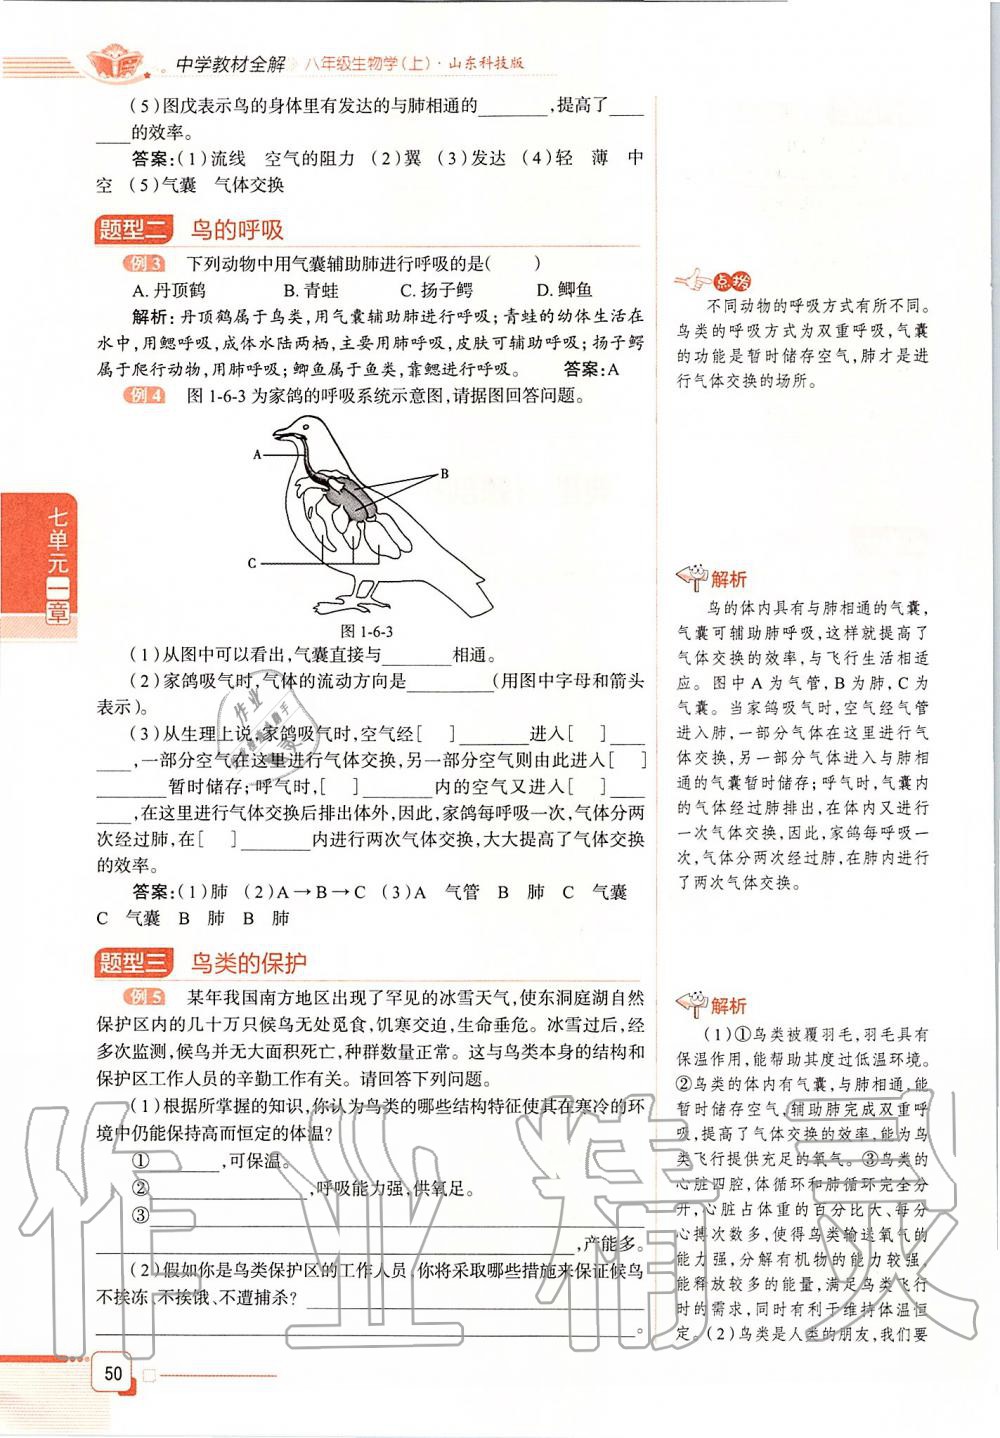 中学教材全解 八年级生物学(上)·山东科技版
(5)图戊表示鸟的身体里有发达的与肺相通的________,提高了____
____的效率。
答案:(1)流线 空气的阻力 (2)翼 (3)发达 (4)轻 薄 中
空 (5)气囊 气体交换
题型二 鸟的呼吸
例3 下列动物中用气囊辅助肺进行呼吸的是( )
A.丹顶鹤 B.青蛙 C.扬子鳄 D.鲫鱼
解析:丹顶鹤属于鸟类,用气囊辅助肺进行呼吸;青蛙的幼体生活在
水中,用鳃呼吸,成体水陆两栖,主要用肺呼吸,皮肤可辅助呼吸;扬子鳄
属于爬行动物,用肺呼吸;鲫鱼属于鱼类,靠鳃进行呼吸。 答案:A
例4 图1-6-3为家鸽的呼吸系统示意图,请据图回答问题。
A
B
C
图1-6-3
(1)从图中可以看出,气囊直接与________相通。
(2)家鸽吸气时,气体的流动方向是__________(用图中字母和箭头
表示)。
(3)从生理上说,家鸽吸气时,空气经[ ]________进入[ ]____
____,一部分空气在这里进行气体交换,另一部分空气则由此进入[ ]
________暂时储存;呼气时,[ ]________内的空气又进入[ ]____
____,在这里进行气体交换后排出体外,因此,家鸽每呼吸一次,气体分两
次经过肺,在[ ]________内进行两次气体交换,大大提高了气体交换
的效率。
答案:(1)肺 (2)A→B→C (3)A 气管 B 肺 C 气囊
C 气囊 B 肺 B 肺
题型三 鸟类的保护
例5 某年我国南方地区出现了罕见的冰雪天气,使东洞庭湖自然
保护区内的几十万只候鸟无处觅食,饥寒交迫,生命垂危。冰雪过后,经
多次监测,候鸟并无大面积死亡,种群数量正常。这与鸟类本身的结构和
保护区工作人员的辛勤工作有关。请回答下列问题。
(1)根据所掌握的知识,你认为鸟类的哪些结构特征使其在寒冷的环
境中仍能保持高而恒定的体温?
①________,可保温。
②________________,呼吸能力强,供氧足。
③________________
________________,产能多。
(2)假如你是鸟类保护区的工作人员,你将采取哪些措施来保证候鸟
不挨冻、不挨饿、不遭捕杀?________________
________________。
点拨
不同动物的呼吸方式有所不同。
鸟类的呼吸方式为双重呼吸,气囊
的功能是暂时储存空气,肺才是进
行气体交换的场所。
解析
鸟的体内具有与肺相通的气囊,
气囊可辅助肺呼吸,这样就提高了
气体交换的效率,与飞行生活相适
应。图中A为气管,B为肺,C为
气囊。当家鸽吸气时,空气经气管
进入肺,一部分气体在这里进行气
体交换,另一部分气体进入与肺相
通的气囊暂时储存;呼气时,气囊内
的气体经过肺排出,在体内又进行
一次气体交换,因此,家鸽每呼吸一
次,气体分两次经过肺,在肺内进行
了两次气体交换。
解析
(1)①鸟类被覆羽毛,羽毛具有
保温作用,能帮助其度过低温环境。
②鸟类的体内有气囊,与肺相通,能
暂时储存空气,辅助肺完成双重呼
吸,提高了气体交换的效率,能为鸟
类飞行提供充足的氧气。③鸟类的
心脏四腔,体循环和肺循环完全分
开,心脏占体重的百分比大、每分
心搏次数多,使得鸟类输送氧气的
能力强,分解有机物的能力较强,
能释放较多的能量,满足鸟类飞行
时的需求,同时有利于维持体温恒
定。(2)鸟类是人类的朋友,我们要
七单元一章
50
作业精灵